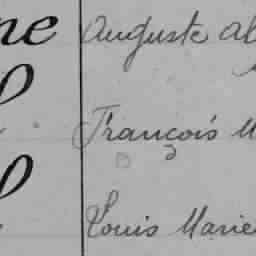 ne Auguste Al
François M
Louis Marie